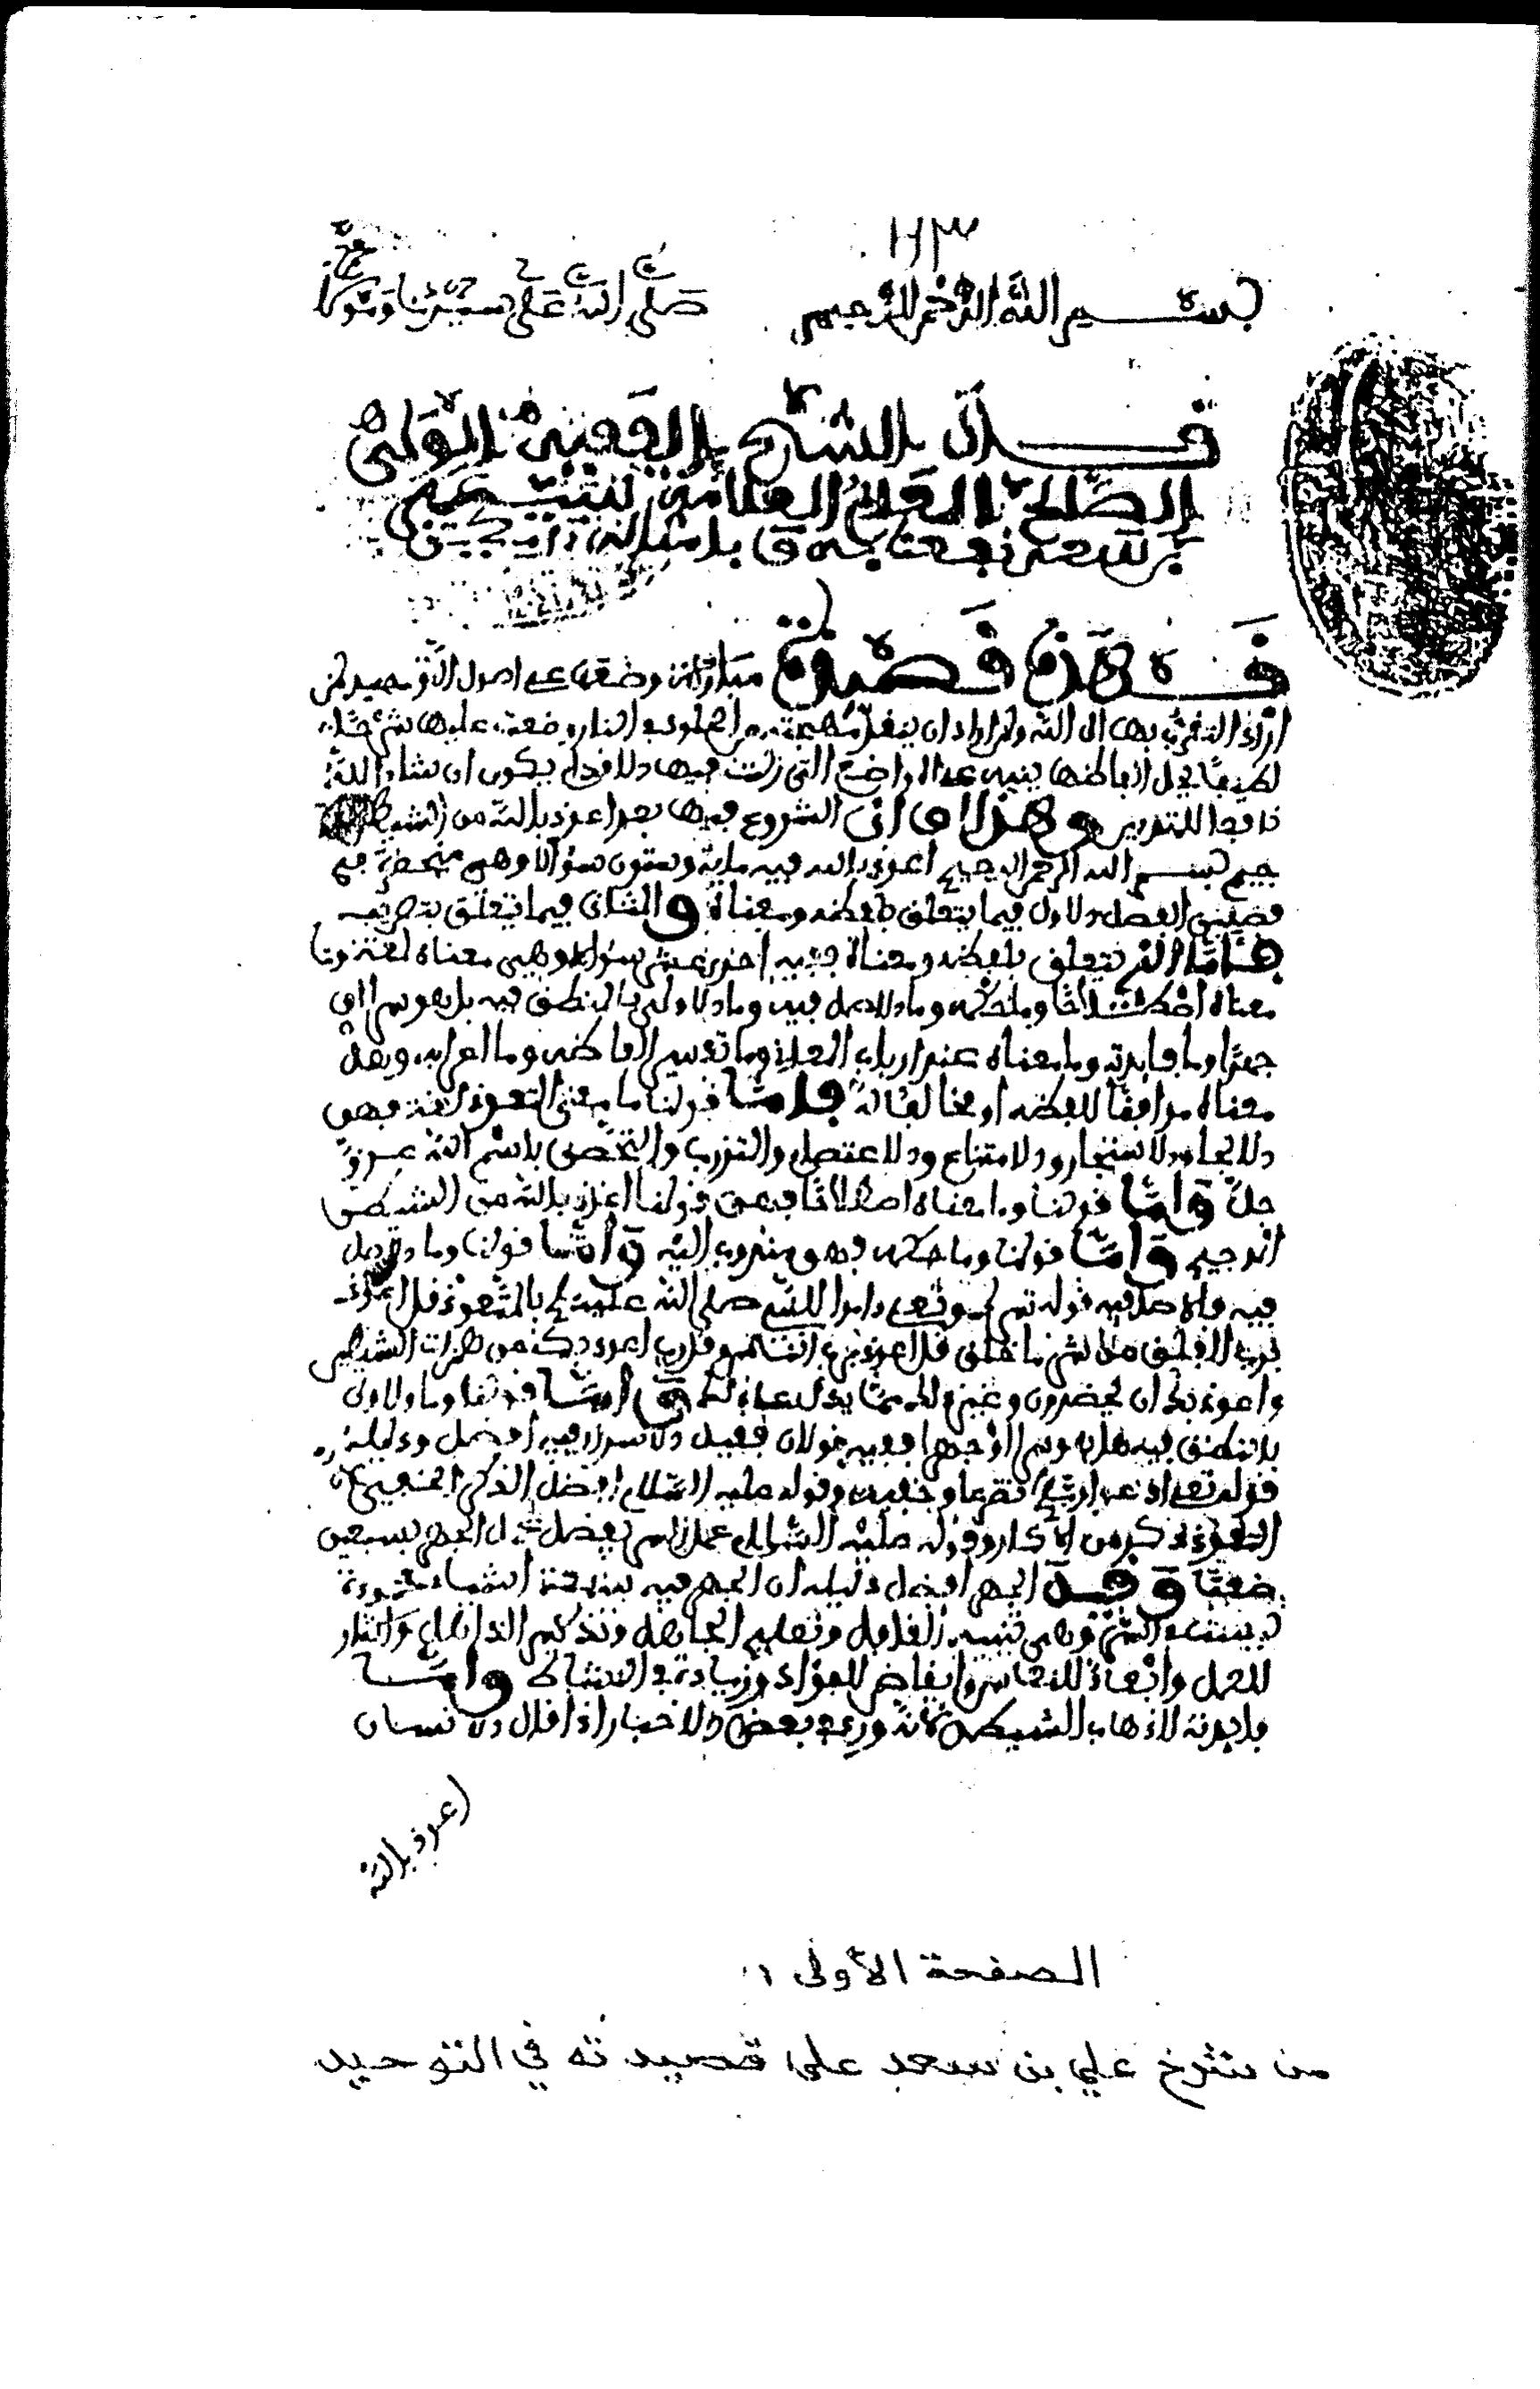 ١٢٣
بسم الله الرحمن الرحيم صلى الله على سيدنا ومولانا
قال الشيخ الفقيه الولي
الصالح العالم العلامة
بن سعد نفعنا به
فهذه قصيدة مباركة وضعتها على اصول التوحيد لمن
اراد التقرب بها الى الله ولمن اراد ان ينقذ مهجته من الخلود في النار وضعت عليها شرحا
لطيفا يحل الفاظها ينبه على المواضع التي زلت فيها الاقدام يكون ان شاء الله
نافعا للمتدبر وهذا اوان الشروع فيها بعد اعوذ بالله من الشيطان
جيم بسم الله الرحمن الرحيم اعوذ بالله فيه ماية وستون سؤالا وهي منحصرة في
فصلين الفصل الاول فيما يتعلق بلفظه ومعناه والثاني فيما يتعلق بتصريفه
فاما الذي يتعلق بلفظه ومعناه ففيه احد عشر سؤالا وهي معناه لغة وما
معناه اصطلاحا وما حكمه وما الاصل فيه وما الاولى بالنطق فيه هل هو سرا او
جهرا وما فايدته وما معناه عند ارباب العلم وما تفسير الفاظه وما اعرابه وهل
معناه موافقا للفظه او مخالفا له فاما قولنا ما معنى التعوذ لغة فهو
الالتجاء والاستجارو والامتناع والاعتصام والتقرب والتحصن باسم الله عز و
جل واما قولنا وما معناه اصطلاحا فهو قولنا اعوذ بالله من الشيطن
الرجيم واما قولنا وما حكمه فهو مندوب اليه واما قولنا وما الاصل
فيه فالاصل فيه قوله تعلى امرا للنبي صلى الله عليه بالتعوذ قل اعوذ
برب الفلق من شر ما خلق قل اعوذ برب الناس وقل رب اعوذ بك من همزات الشيطين
واعوذ بك ان يحضرون وغير ذلك مما يدل على ذلك واما قولنا وما الاولى
بالنطق فيه هل هو سرا او جهرا ففيه قولان فقيل الاسرار فيه افضل ودليله
قوله تعلى ادعوا ربكم تضرعا وخفية وقوله عليه السلام افضل الذكر الخفي
التعوذ ذكر من الاذكار وقوله عليه السلام عمل السر يفضل عمل الجهر بسبعين
ضعفا وقيل الجهر افضل دليله ان الجهر فيه
وهي تنبيه الغافل وتعليم الجاهل وتذكير
للعمل وايقاظ للفؤاد وزيادة في النشاط واما
فايدته لاذهاب الشيطن لانه وري في بعض الاخبار اذا قال الانسان
اعوذ بالله
الصفحة الأولى ١
من شرح علي بن سعد على قصيدته في التوحيد